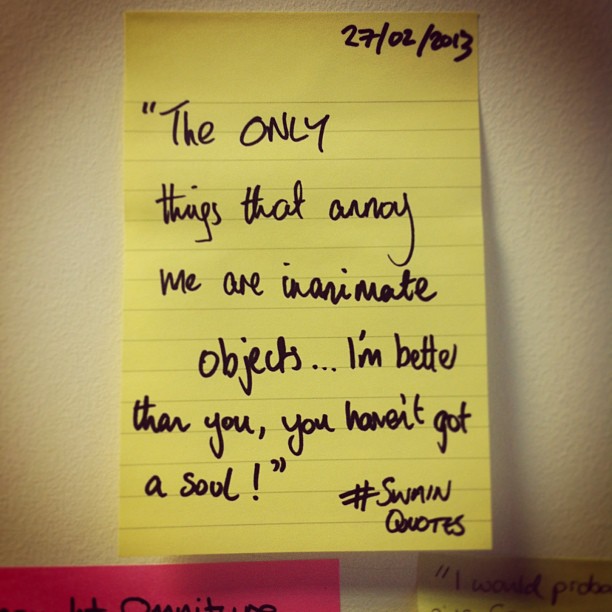 27/02/2013
"The ONLY
things that annoy
me are inanimate
objects... I'm better
than you, you haven't got
a soul!"
#SWAIN
QUOTES
"I would proba